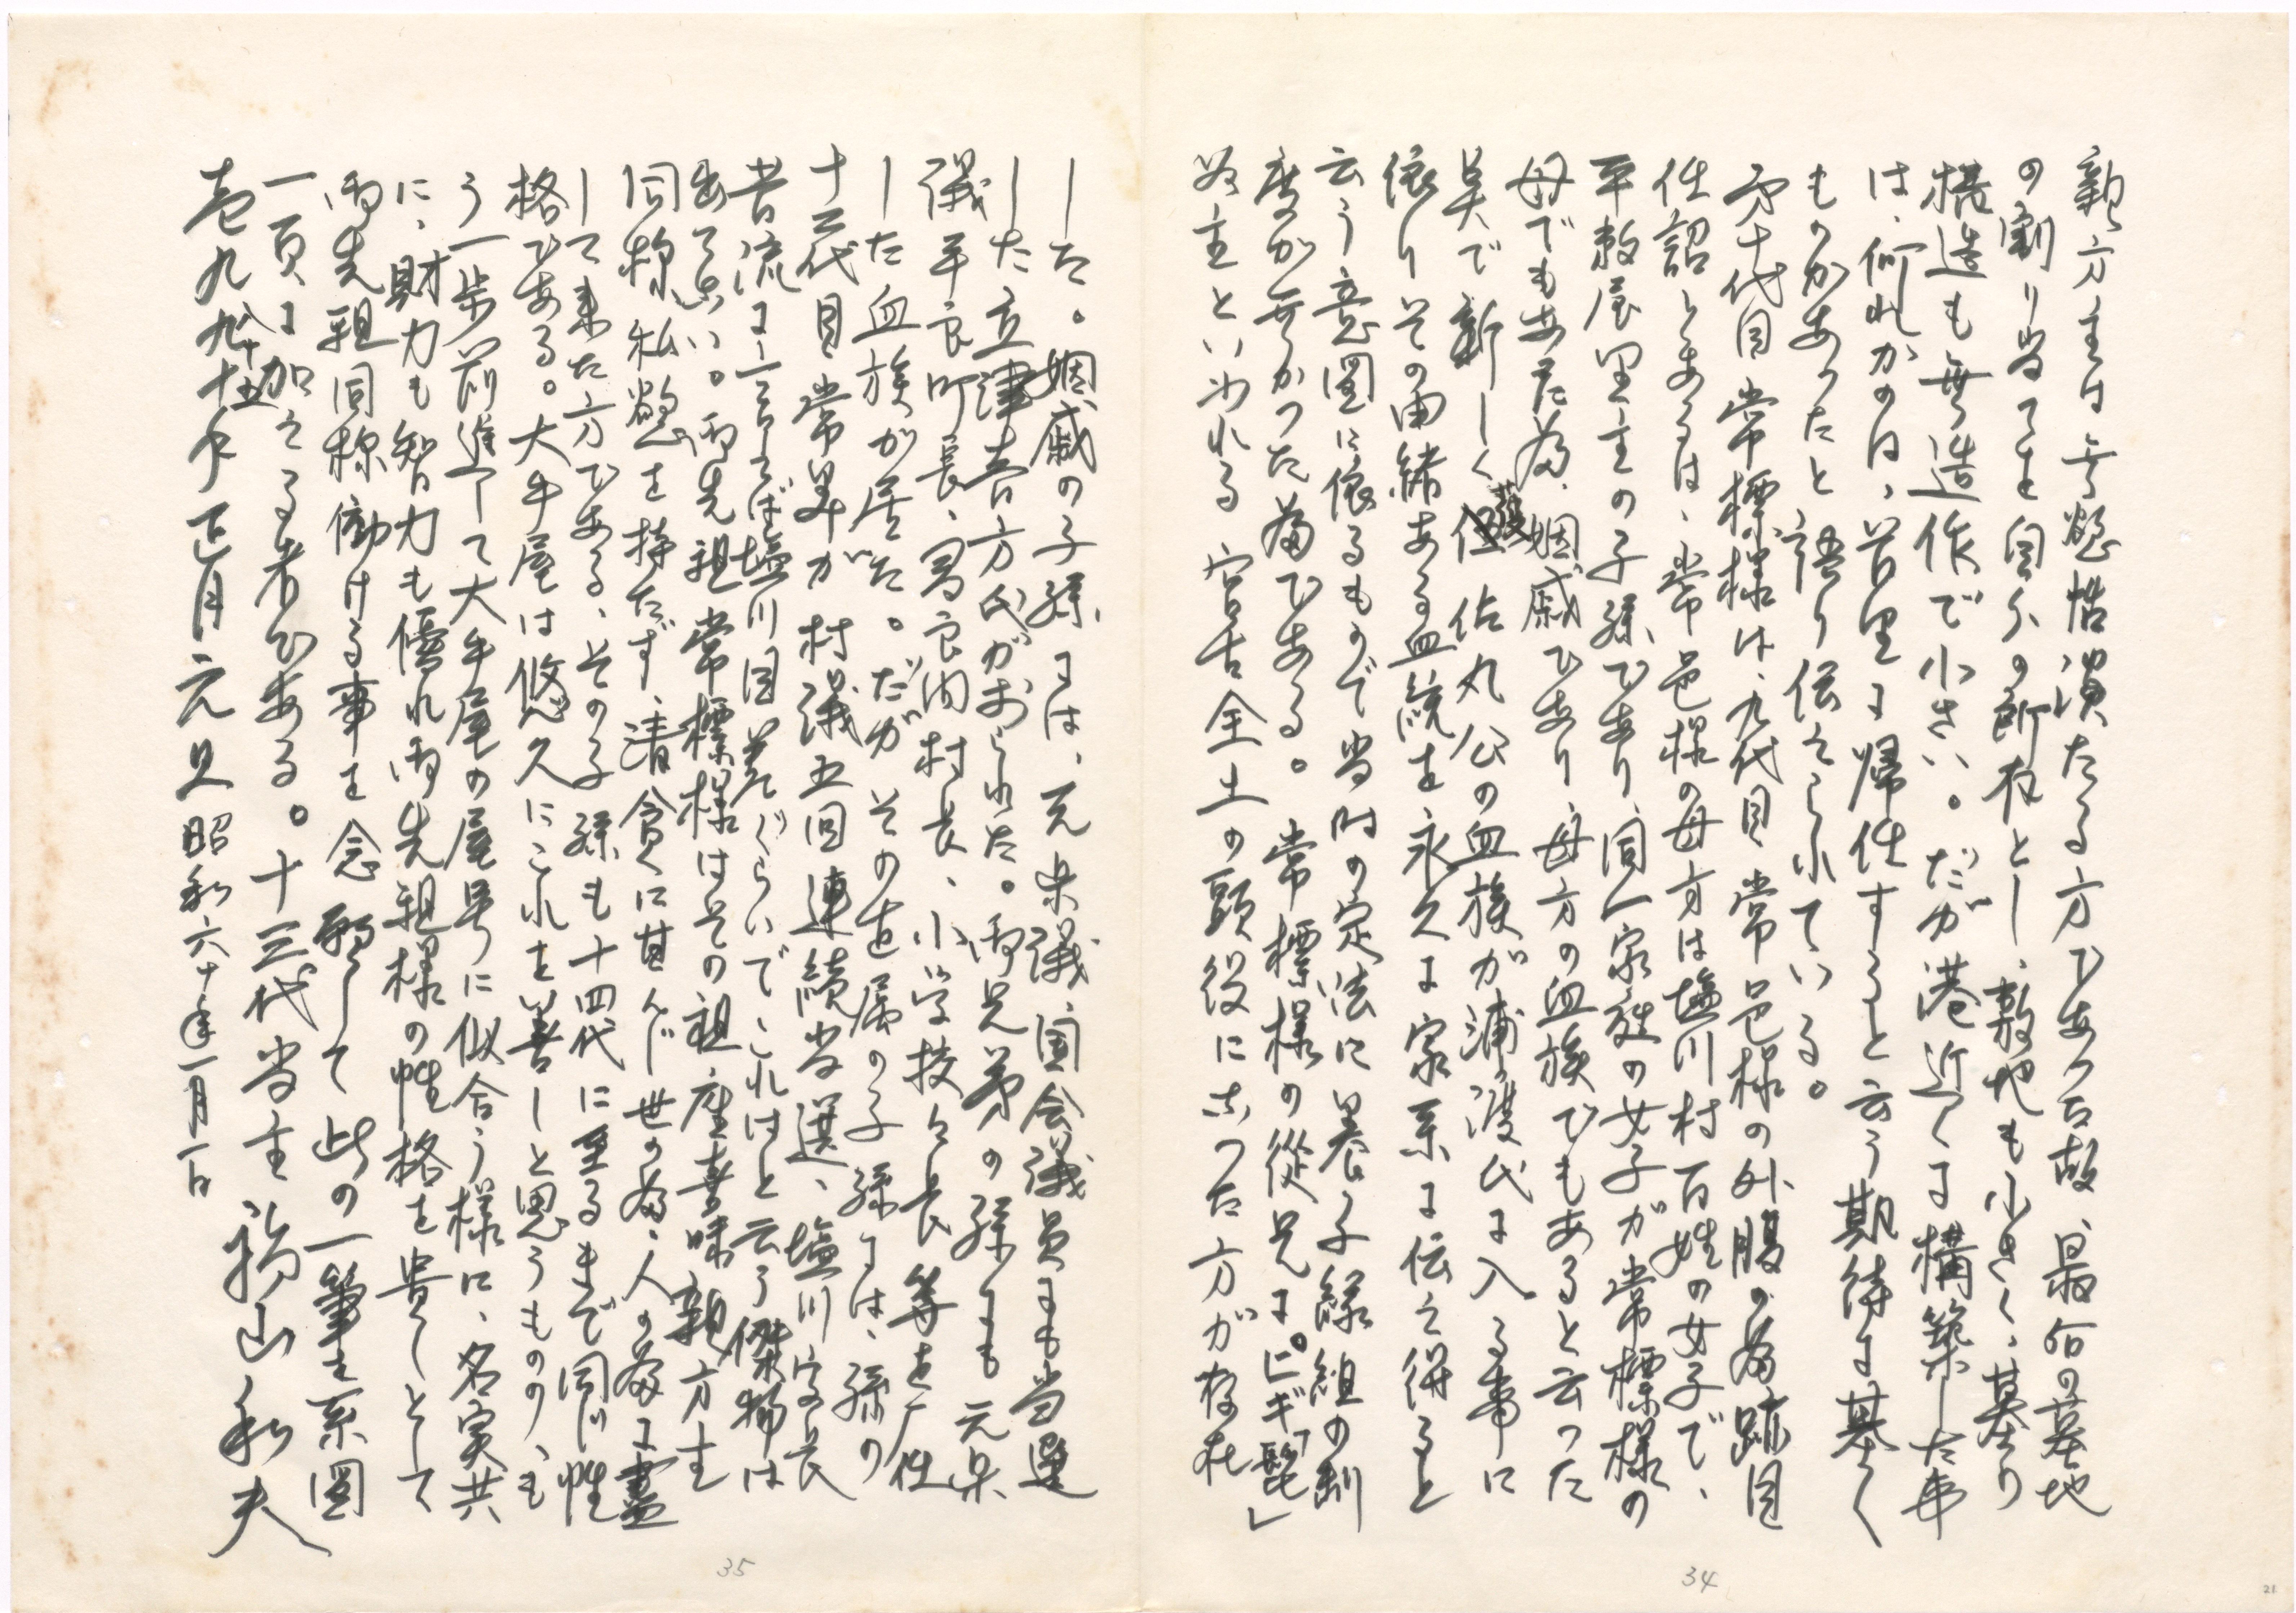 親方主は無慾恬淡たる方であつた故、最后の墓地
の割り当てを自分の所有とし、敷地も小さく、墓の
構造も無造作で小さい。だが港近くに構築した事
は、何れかの日、首里に帰住すると云う期待に基く
ものがあつたと語り伝えられている。
第十代目常標様は、九代目常邑様の外腹の為跡目
仕詔とあるは、常邑様の母方は塩川村百姓の女子で、
平敷屋里主の子孫であり、同人家族の女子が常標様の
母でもあた為、姻戚であり、母方の血族でもあると云つた
具で新しく護佐丸公の血族が浦渡氏に入る事に
依りその由緒ある血統を永久に家系に伝え得ると
云う意図に依るもので当時の定法に養子縁組の制
度が無かつた為である。常標様の従兄に。ヒギ「髭」
為主といわれる宮古全土の頭役になつた方が存在
した。姻戚の子孫には、元県議、国会議員にも当選
した立津春方氏がおられた。両兄弟の孫にも元県
議平良町長、多良間村長、小学校々長等を歴任
した血族が居た。だがその直属の子孫には、孫の
十二代目常昇が村議五回連続当選、塩川字長
昔流に言えば塩川目差ぐらいでこれはと云う傑物は
出てない。両先祖常標様はその祖座喜味親方主
同様私慾を持たず、清貧に甘んじ世の為、人の為に盡
して来た方である、その子孫も十四代に至るまで同じ性
格である。大牛屋は悠久にこれを善しと思うものゝも
う一歩前進して大牛屋の屋号に似合う様に、名実共
に、財力も智力も優れ両先祖様の性格を貴しとして
両先祖同様働ける事を念願して此の一筆を系図
一頁に加える者である。十三代当主 福山和夫
壱九八十五年正月元旦 昭和六十年一月一日
35
34
21